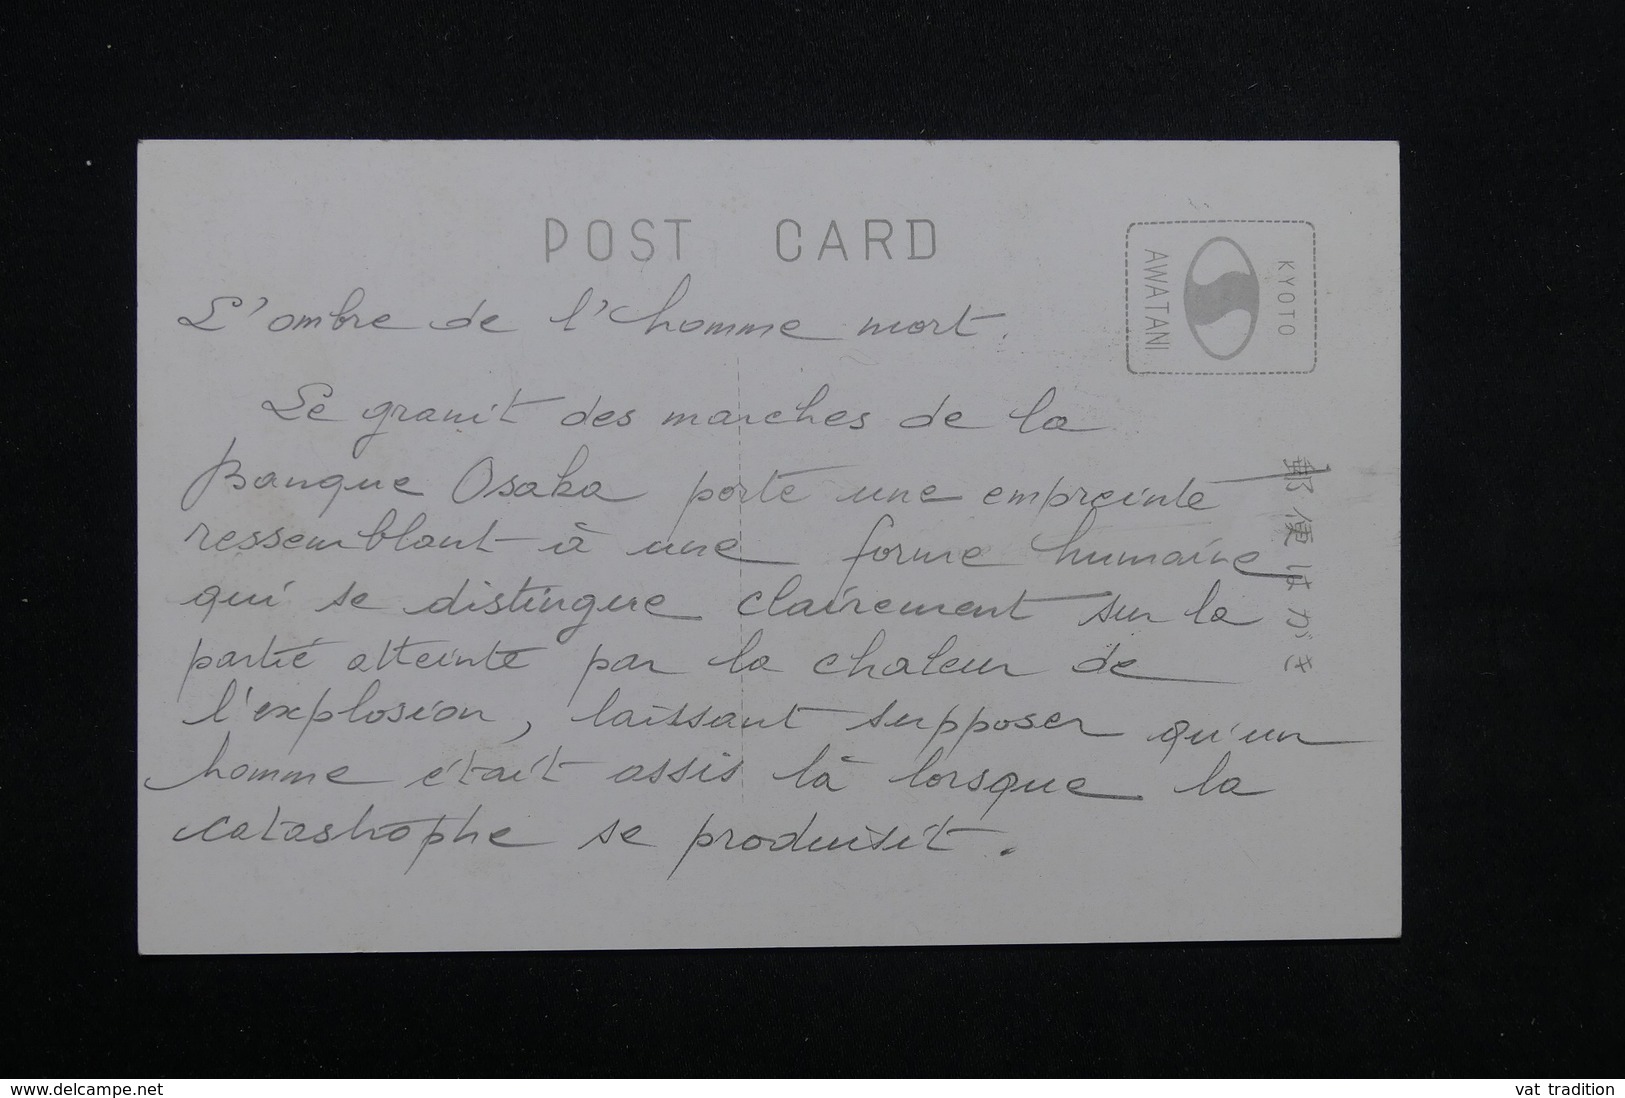 POST CARD
KYOTO
AWATANI
L'ombre de l'homme mort.
Le granit des marches de la
Banque Osaka porte une empreinte
ressemblant à une forme humaine
qui se distingue clairement sur la
partie atteinte par la chaleur de
l'explosion, laissant supposer qu'un
homme était assis là lorsque la
catastrophe se produisit.
郵便はがき
www.delcampe.net
vat tradition